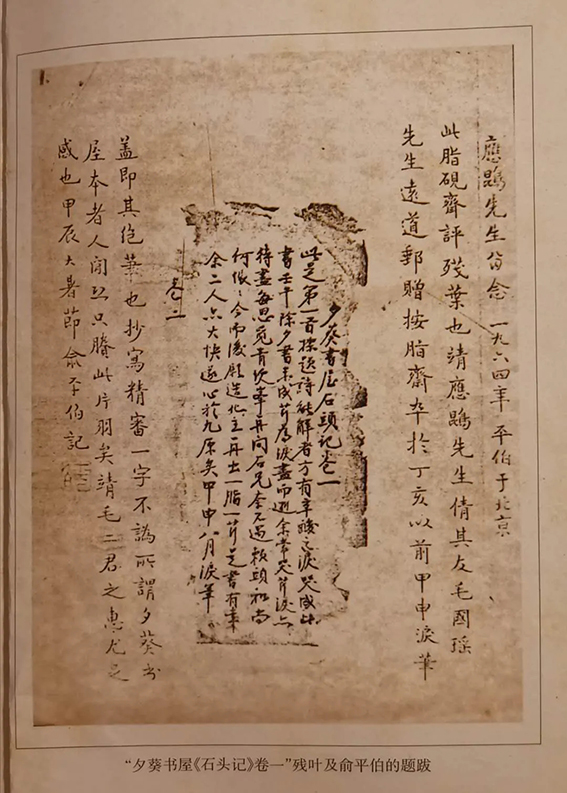 應鵾先生留念 一九六四年 平伯于北京
此脂硯齋評殘葉也靖應鵾先生倩其友毛國瑤
先生遠道郵贈按脂齋卒於丁亥以前甲申淚筆
夕葵書屋石頭記卷一
此是第一首標題詩能解者方有辛酸之淚哭成此
書壬午除夕書未成芹為淚盡而逝余常哭芹淚亦
待盡每思覓青埂峯再問石兄余不遇癩頭和尚
何悵〻今而後願造化主再出一脂一芹是書有幸
余二人亦大快遂心於九原矣甲申八月淚筆
卷二
蓋即其絕筆也抄寫精審一字不訛所謂夕葵書
屋本者人間恐只賸此片羽矣靖毛二君之惠尤足
感也甲辰大暑節俞平伯記
“夕葵书屋《石头记》卷一”残叶及俞平伯的题跋